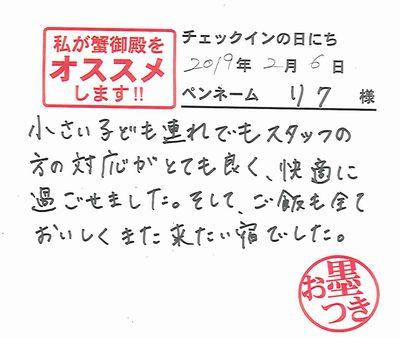 私が蟹御殿を
オススメ
します!!
チェックインの日にち
2019年 2月 6日
ペンネーム リク 様
小さい子ども連れでもスタッフの
方の対応がとても良く、快適に
過ごせました。そして、ご飯も全て
おいしくまた来たい宿でした。
お墨つき